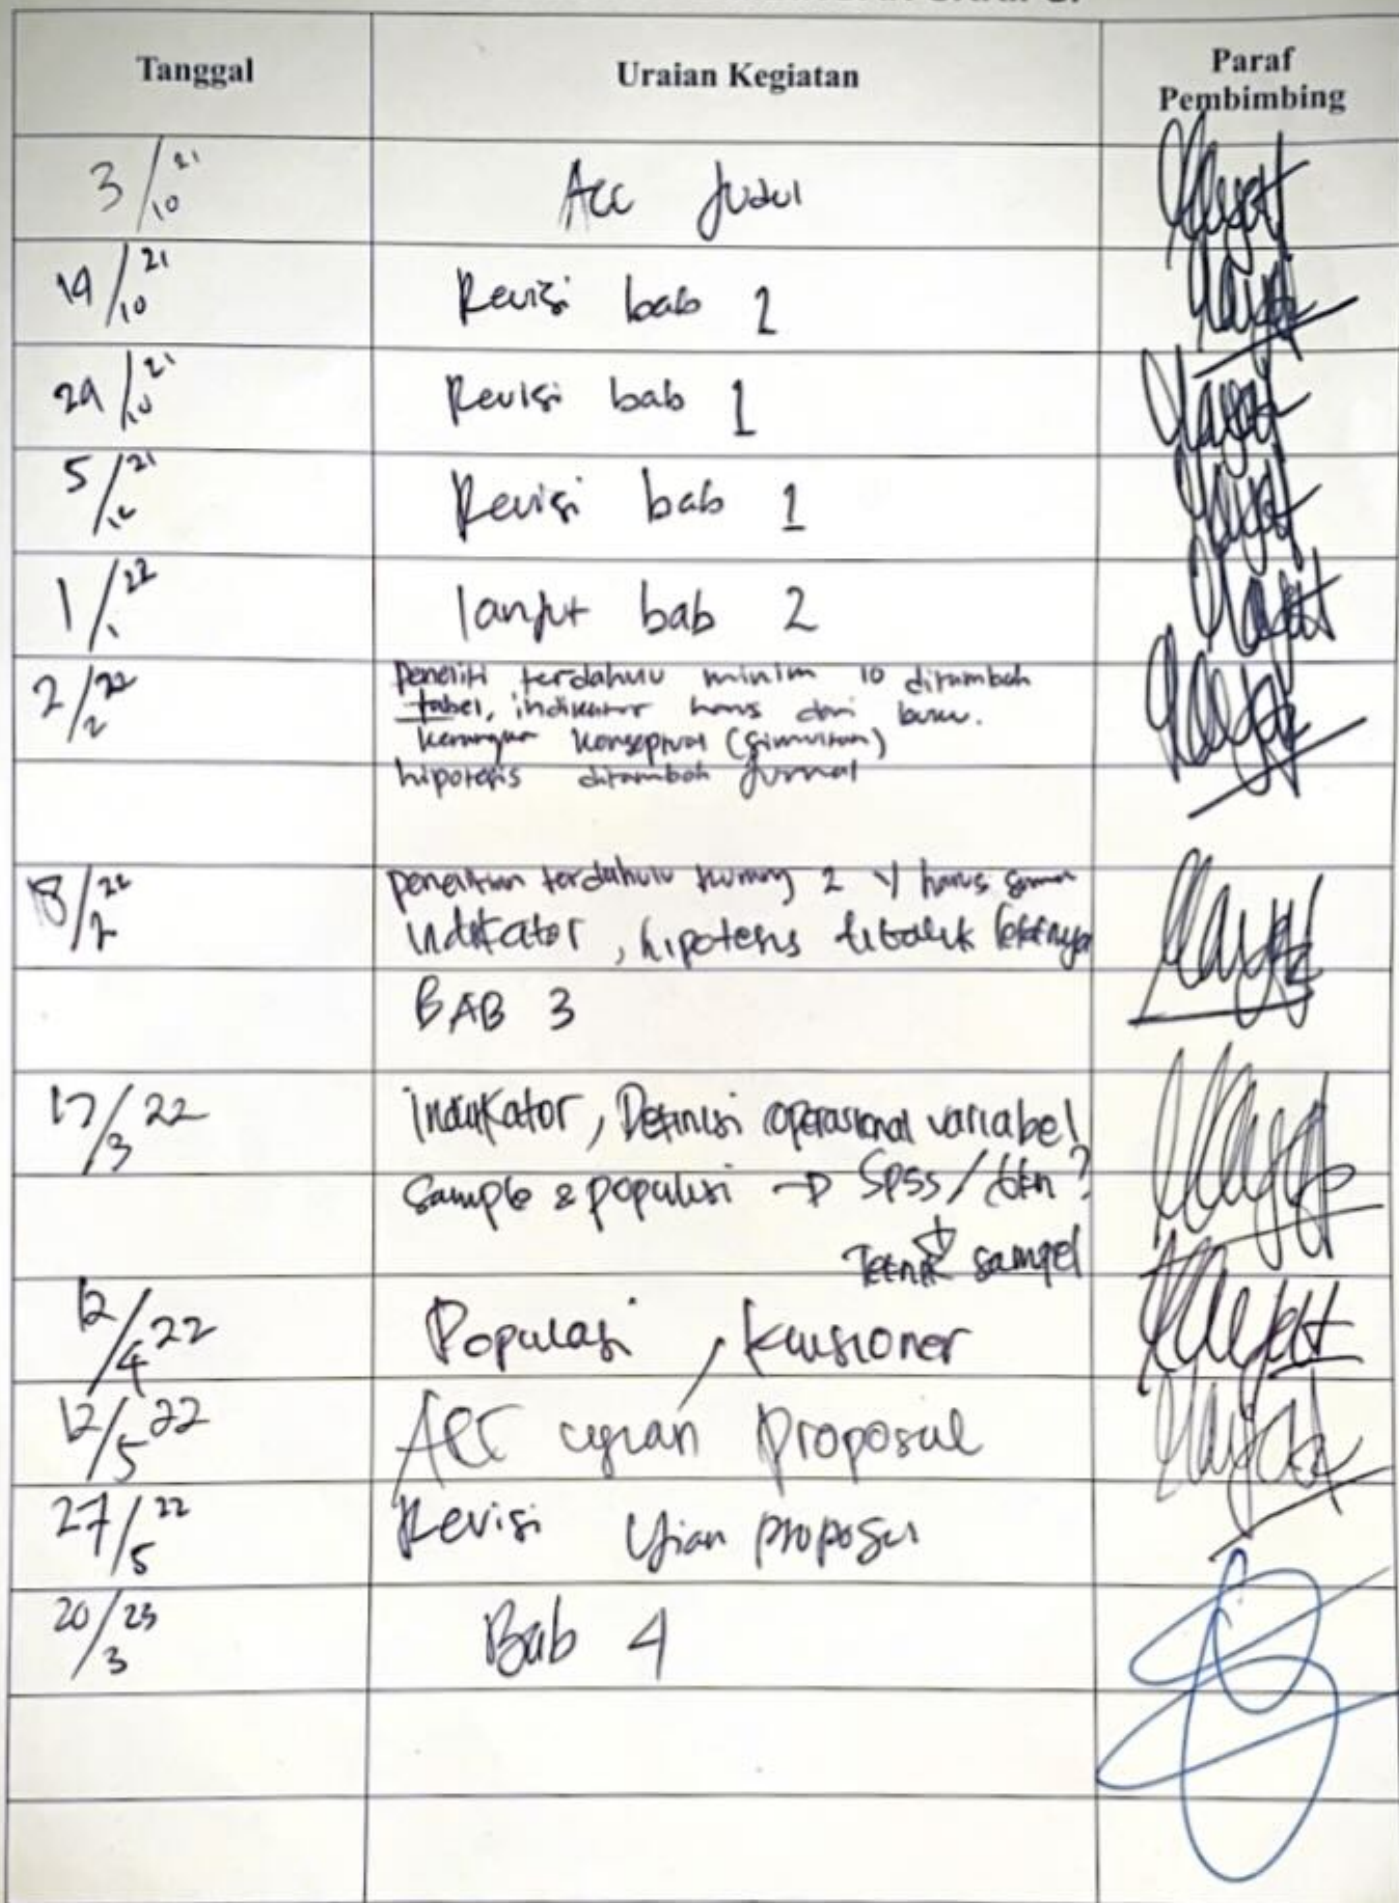 Tanggal Uraian Kegiatan Paraf
Pembimbing
3/10 21 Acc Judul
19/10 21 Revisi bab 1
29/10 21 Revisi bab 1
5/12 21 Revisi bab 1
1/1 22 lanjut bab 2
2/2 22 Peneliti terdahulu minim 10 ditambah
tabel, indikator harus dari buku.
kerangka konseptual (simultan)
hipotesis ditambah Jurnal
18/2 22 penelitian terdahulu kurang 2 y harus sama
indikator, hipotesis dibalik letaknya
BAB 3
17/3 22 indikator, Definisi operasional variabel
Sample & populasi → SPSS/
Teknik sampel
12/4 22 Populasi, kuisioner
12/5 22 ACC ujian Proposal
27/5 22 Revisi Ujian proposal
20/3 23 Bab 4